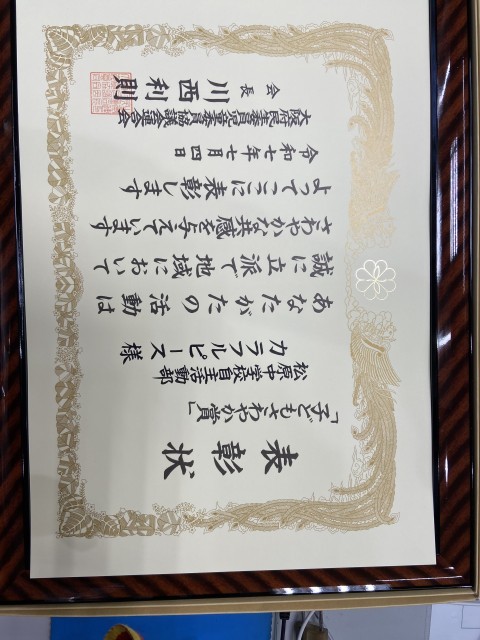 表彰状
「子どもさわやか賞」
松原中学校自主活動部
カラフルピース様
あなたがたの活動は
誠に立派で地域において
さわやかな共感を与えています
よってここに表彰します
令和七年七月四日
大阪府民生委員児童委員協議会連合会
会長 川西利則